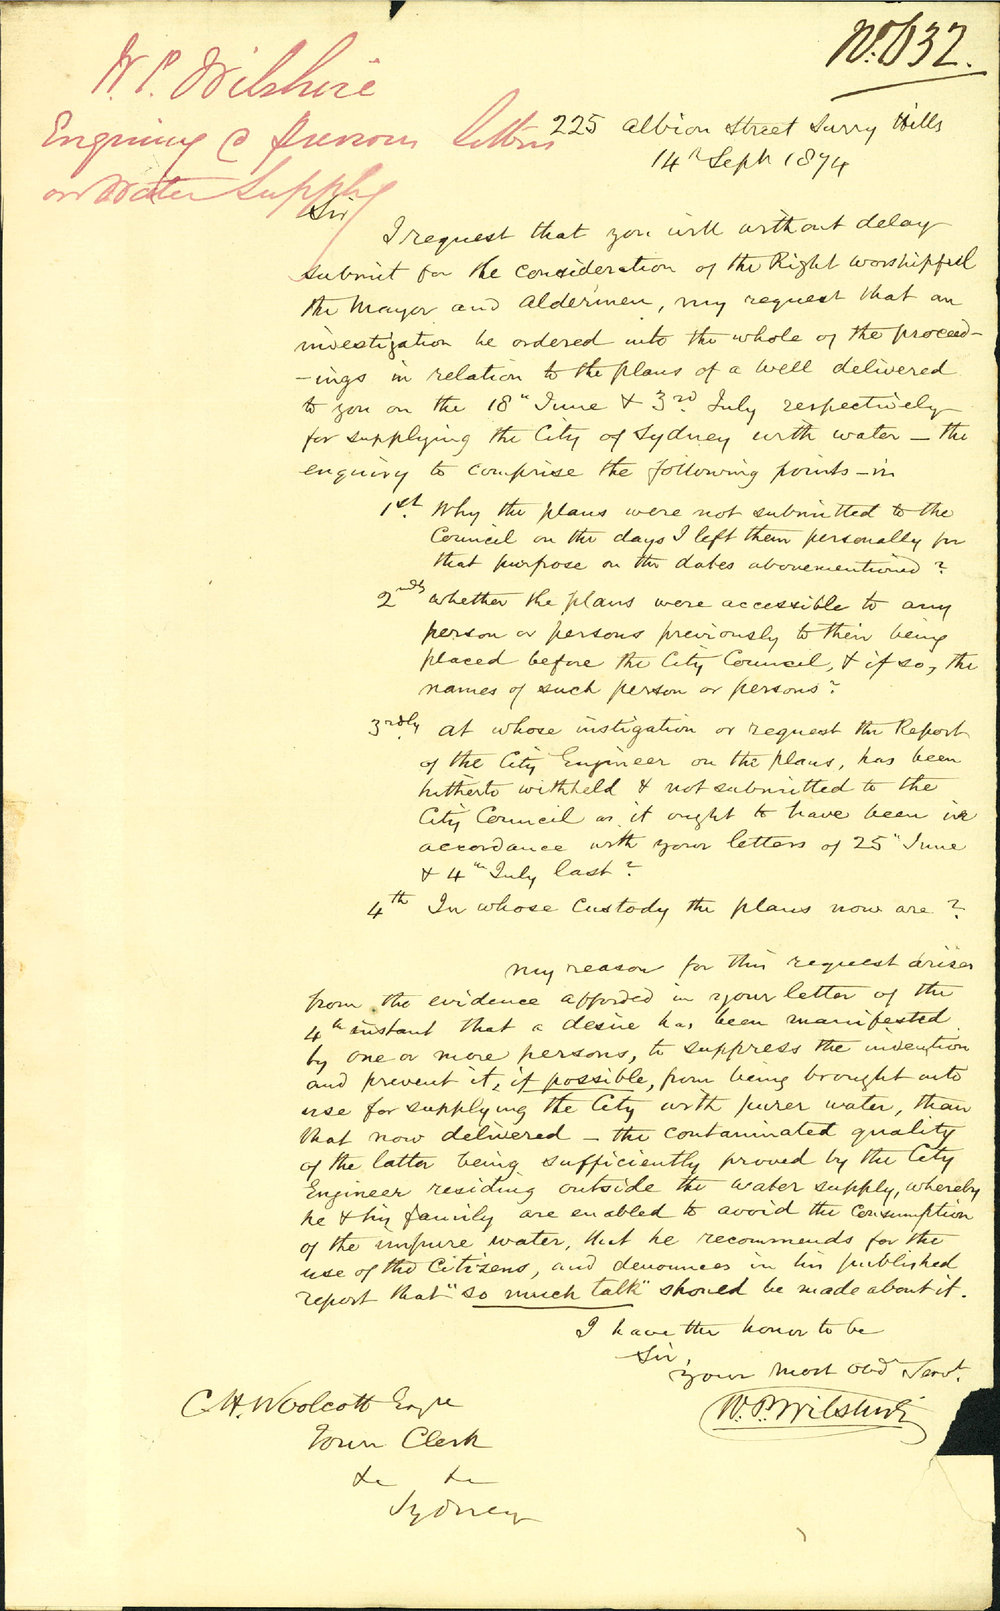 No. 632.
W. P. Wilshire
Enquiring @ previous letters
on Water Supply
225 Albion Street Surry Hills
14th Sept 1874
Sir
I request that you will without delay
submit for the consideration of the Right Worshipful
the Mayor and Aldermen, my request that an
investigation be ordered into the whole of the proceed-
-ings in relation to the plans of a well delivered
to you on the 18" June & 3rd. July respectively
for supplying the City of Sydney with water – the
enquiry to comprise the following points – in
1st. Why the plans were not submitted to the
Council on the days I left them personally for
that purpose on the dates abovementioned?
2ndly whether the plans were accessible to any
person or persons previously to their being
placed before the City Council, & if so, the
names of such person or persons?
3rdly. at whose instigation or request the Report
of the City Engineer on the plans, has been
hitherto withheld & not submitted to the
City Council as it ought to have been in
accordance with your letters of 25" June
& 4th July last?
4th In whose Custody the plans now are?
My reason for this request arises
from the evidence afforded in your letter of the
4th instant that a desire has been manifested
by one or more persons, to suppress the invention
and prevent it, if possible, from being brought into
use for supplying the City with purer water, than
that now delivered – the contaminated quality
of the latter being sufficiently proved by the City
Engineer residing outside the water supply, whereby
he & his family are enabled to avoid the consumption
of the impure water, that he recommends for the
use of the Citizens, and denounces in his published
report that "so much talk" should be made about it.
I have the honor to be
Sir,
Your Most Obd Servt.
W. P. Wilshire
C. H. Woolcott Esqre
Town Clerk
&c &c
Sydney